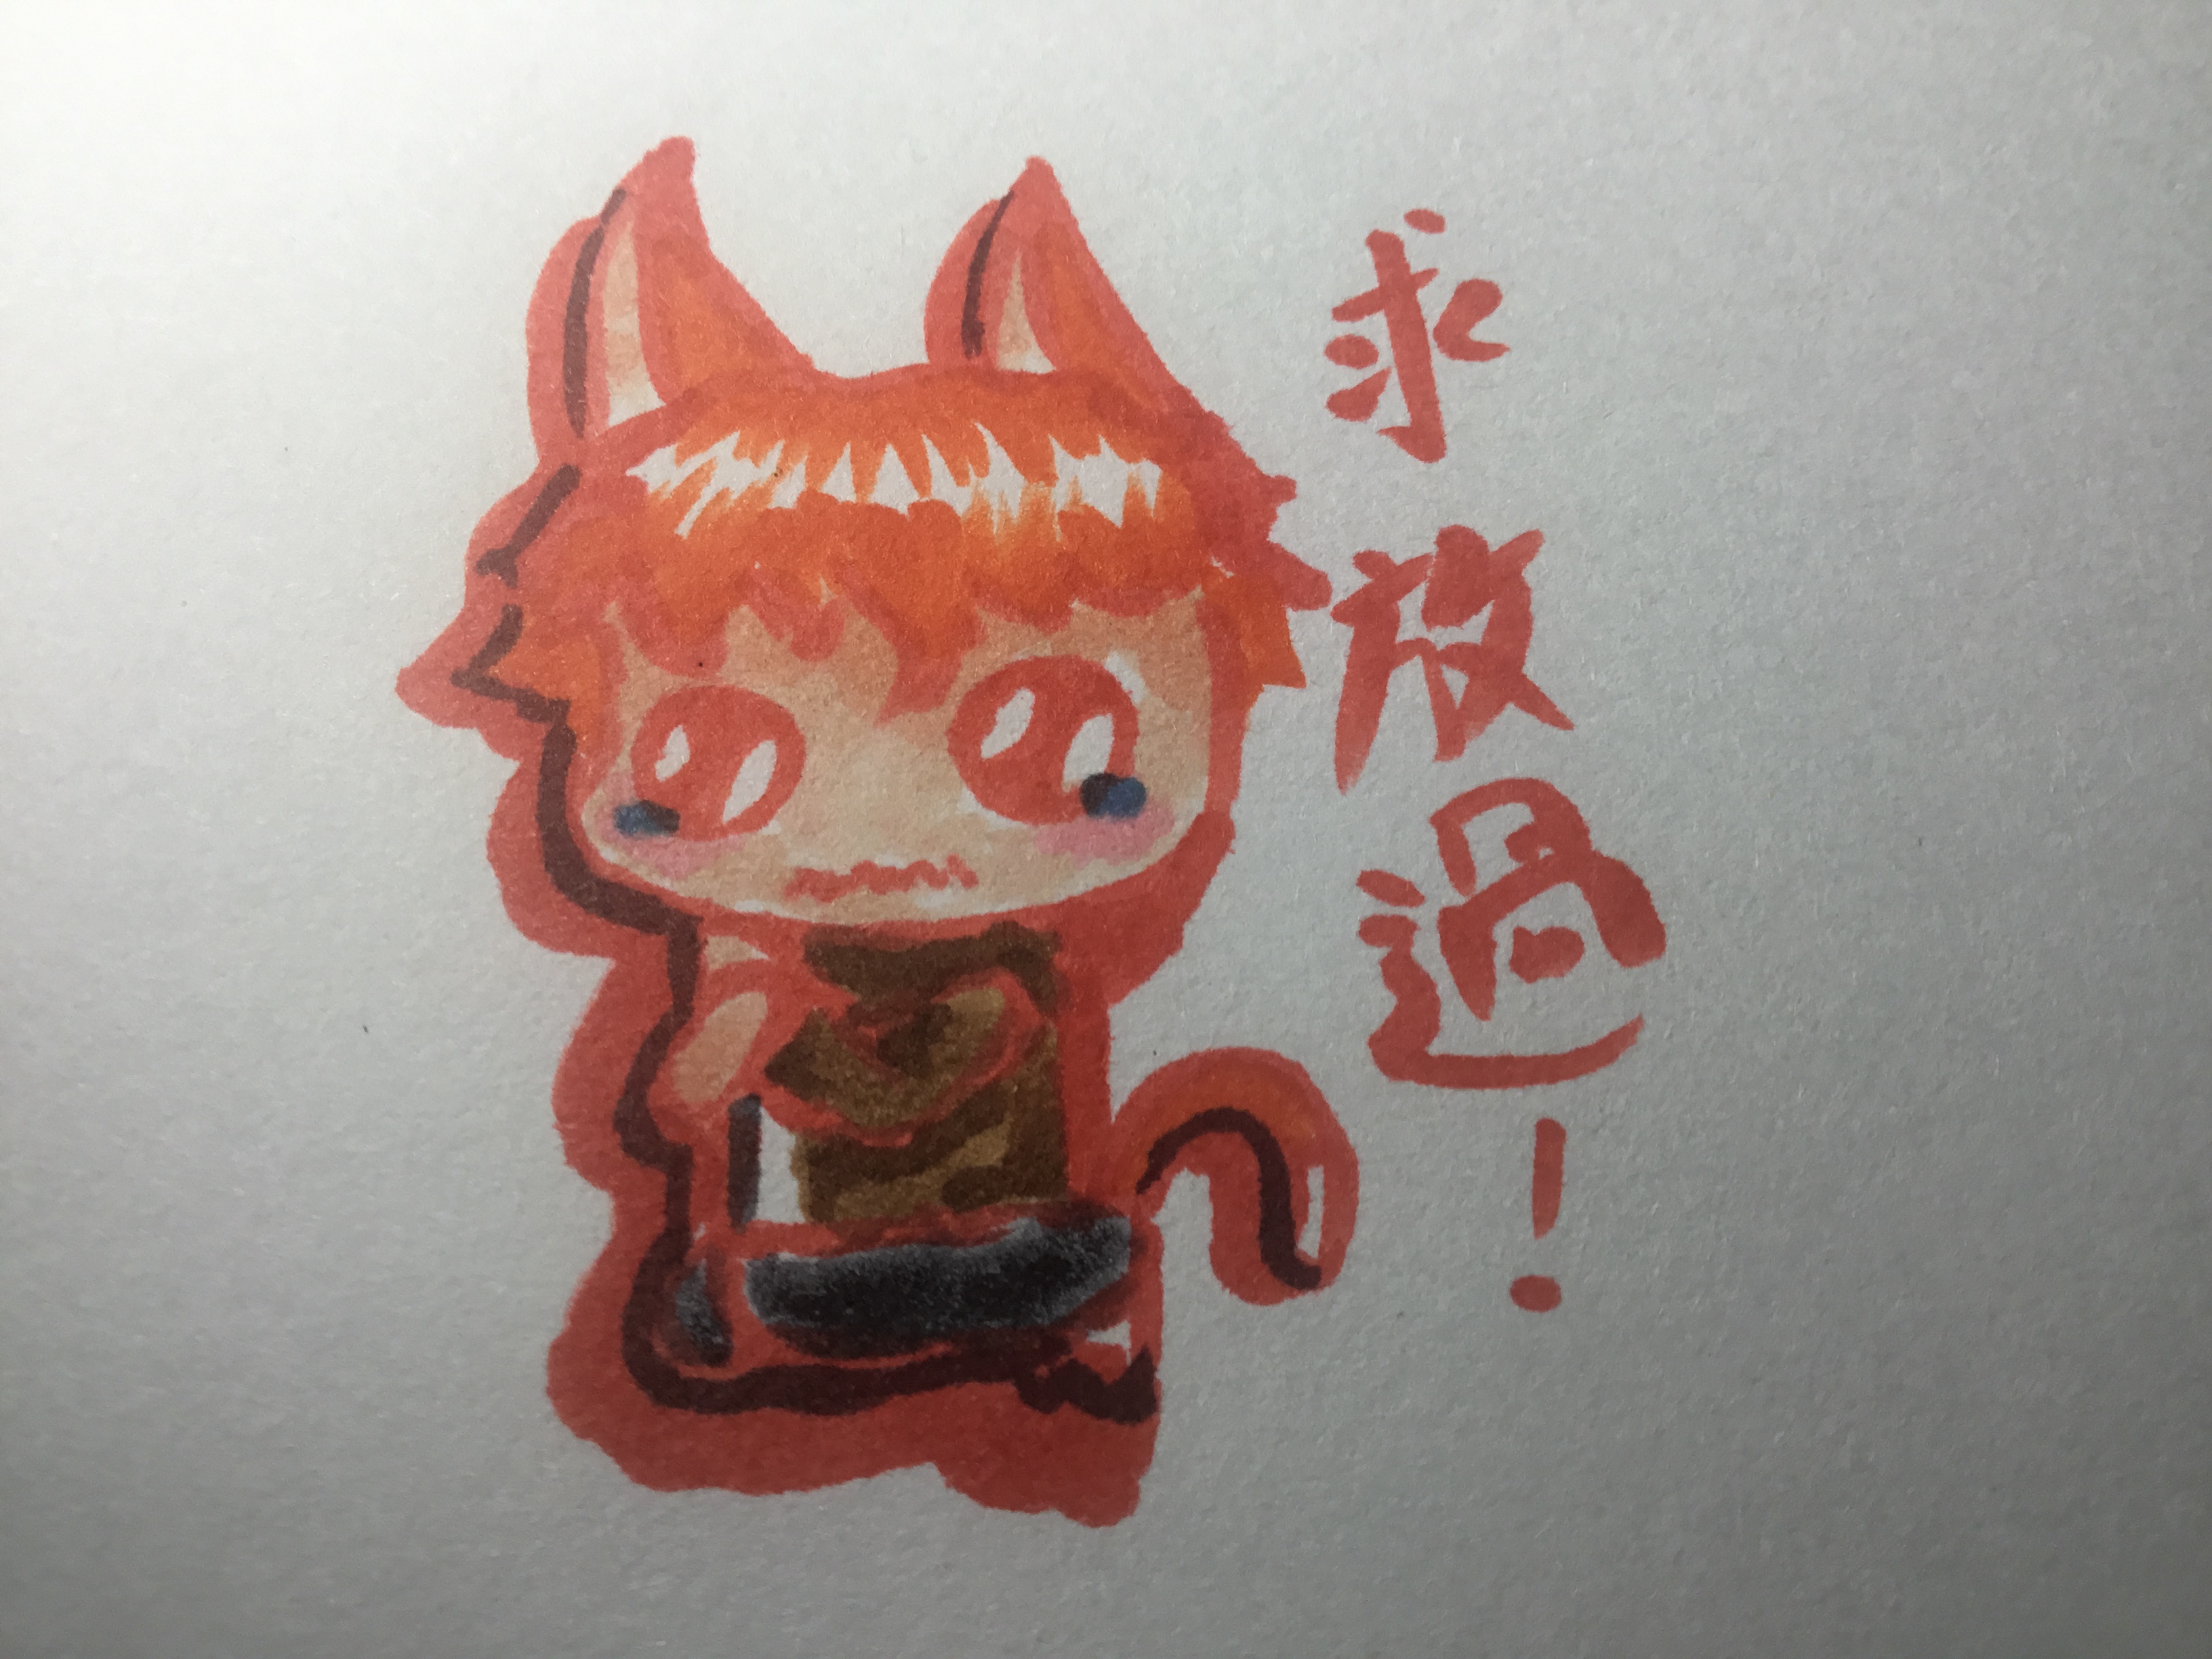 求放過！